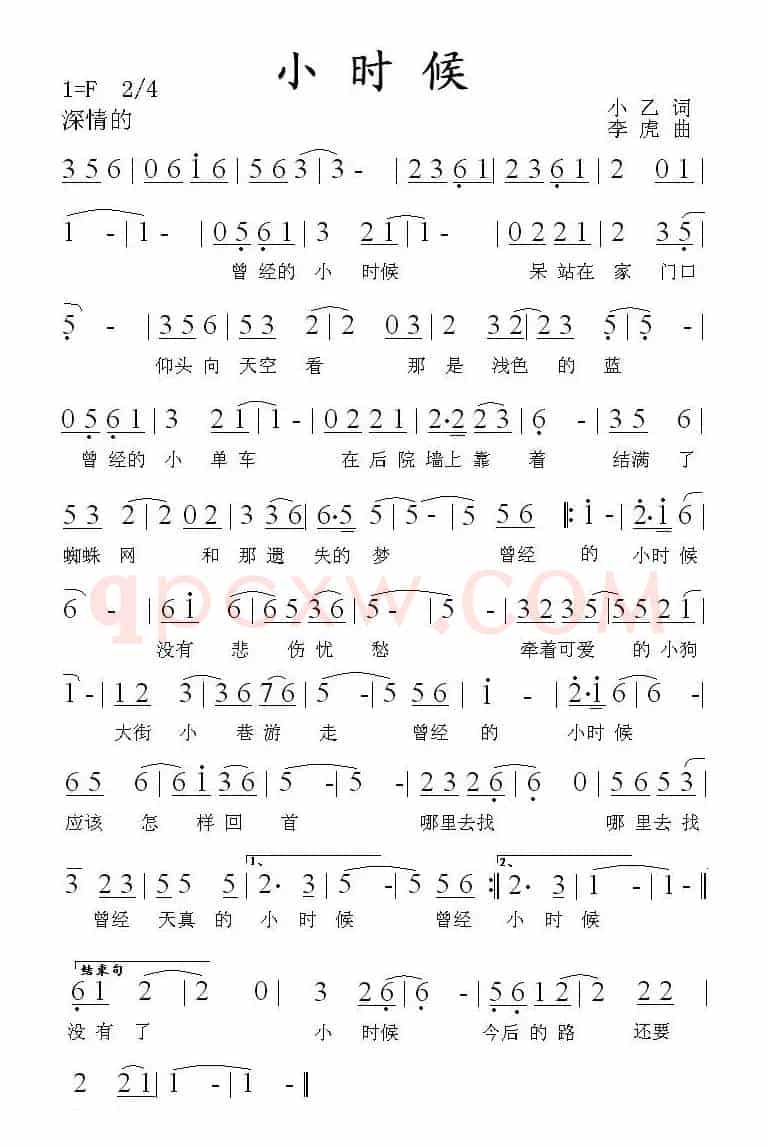 小时候
1=F 2/4
深情的
小乙词
李虎曲
356|061̇6|563 3-|2361|2361|2 01|
1 -|1-|0561|3 21|1-|0221|2 35|
曾经的小时候 呆站在家门口
5 -|356|53 2|2 03|2 32|23 5|5 -|
仰头向天空看 那是浅色的蓝
0561|3 21|1-|0221|2·223|6 -|35 6|
曾经的小单车 在后院墙上靠着 结满了
53 2|2 02|3 36|6·5 5|5-|5 56|: 1̇ -|2̇·1̇ 6|
蜘蛛网 和那遗失的梦 曾经的小时候
6 -|61̇ 6|6536|5 -|5 -|3235|55 21|
没有悲伤忧愁 牵着可爱的小狗
1-|12 3|36 76|5 -|5 56|1̇ -|2̇·1̇ 6|6
大街小巷游走 曾经的小时候
65 6|61̇ 36|5 -|5 -|2326|6 0|5653|
应该怎样回首 哪里去找 哪里去找
3 23|55 5|2· 3|5 -|5 56:|2· 3|1 -|1 -‖
1、
2、
曾经天真的小时候 曾经小时候
结束句
61 2|2 0|3 26|6 -|5612|2 -|
没有了 小时候 今后的路还要
2 21|1 -|1 -‖
qpcxw.COM